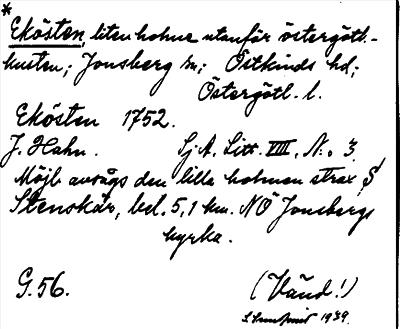 *
Ekösten, liten holme utanför östergötl.-
kusten; Jonsberg sn; Östkinds hd;
Östergötl. l.
Ekösten 1752.
J. Hahn. Sj. A. Litt. VIII, N:o 3.
Möjl. avsågs den lilla holmen strax S
Stenskär, bel. 5,1 km. NO Jonsbergs
kyrka.
G. 56. (Vänd!)
1939.